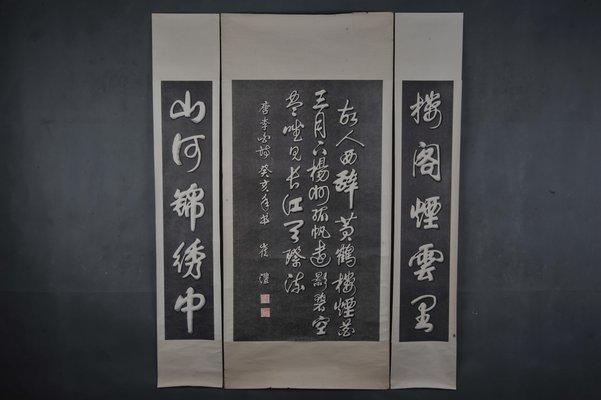 楼閣煙雲里
故人西辞黄鶴楼煙花
三月下揚州孤帆遠影碧空
尽唯見長江天際流
唐李白詩 癸亥年 崔
山河錦绣中